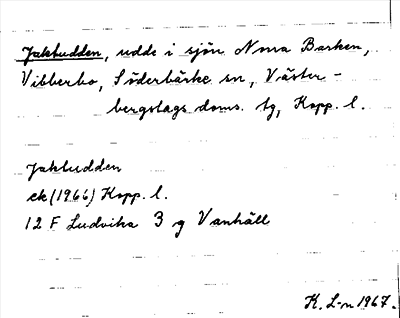 Jaktudden, udde i sjön Norra Barken,
Vibberbo, Söderbärke sn, Väster-
bergslags doms. tg, Kopp. l.
Jaktudden
ek (1966) Kopp. l.
12 F Ludvika 3 g Vanhäll
K. L-n 1967.